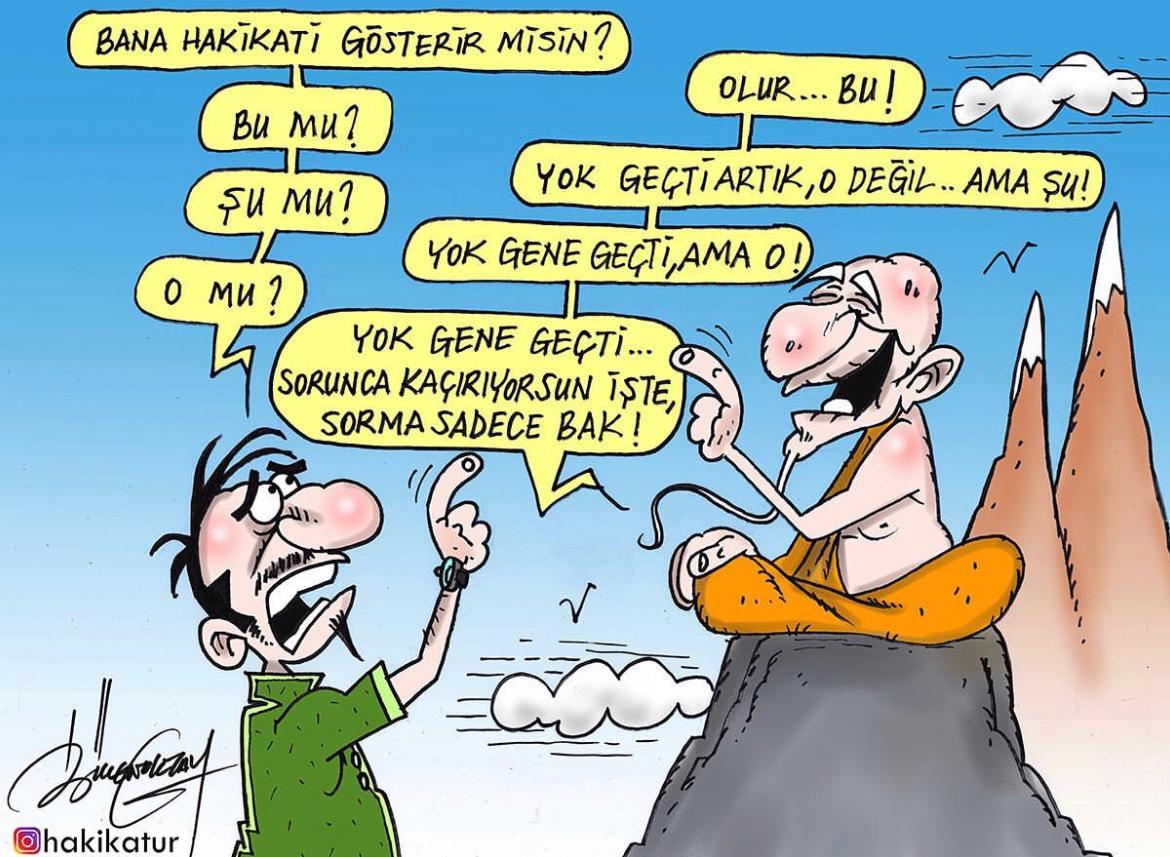 BANA HAKİKATİ GÖSTERİR MİSİN?
OLUR... BU!
BU MU?
YOK GEÇTİ ARTIK, O DEĞİL.. AMA ŞU!
ŞU MU?
YOK GENE GEÇTİ, AMA O!
O MU?
YOK GENE GEÇTİ...
SORUNCA KAÇIRIYORSUN İŞTE,
SORMA SADECE BAK!
hakikatur